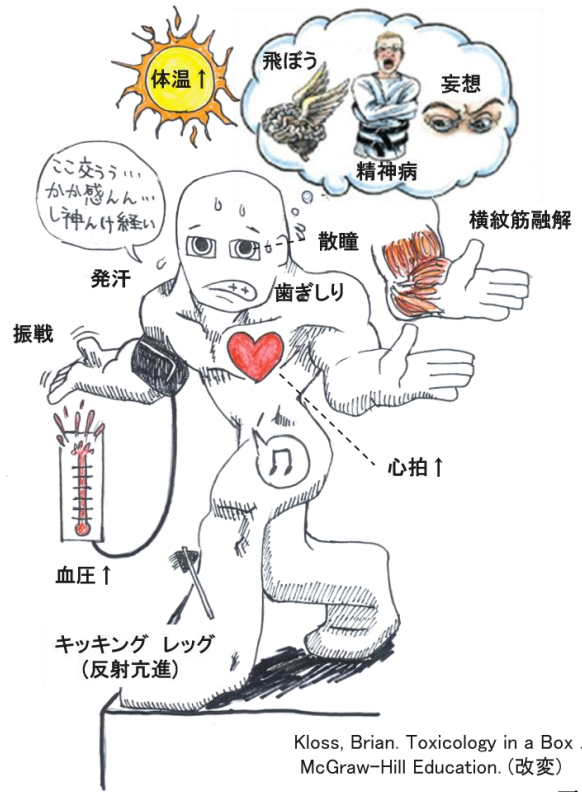 体温↑
飛ぼう
妄想
精神病
ここ交うう…
かか感んん…
し神んけ経い
散瞳
横紋筋融解
発汗
歯ぎしり
振戦
心拍↑
血圧↑
キッキング レッグ
(反射亢進)
Kloss, Brian. Toxicology in a Box .
McGraw-Hill Education. (改変)